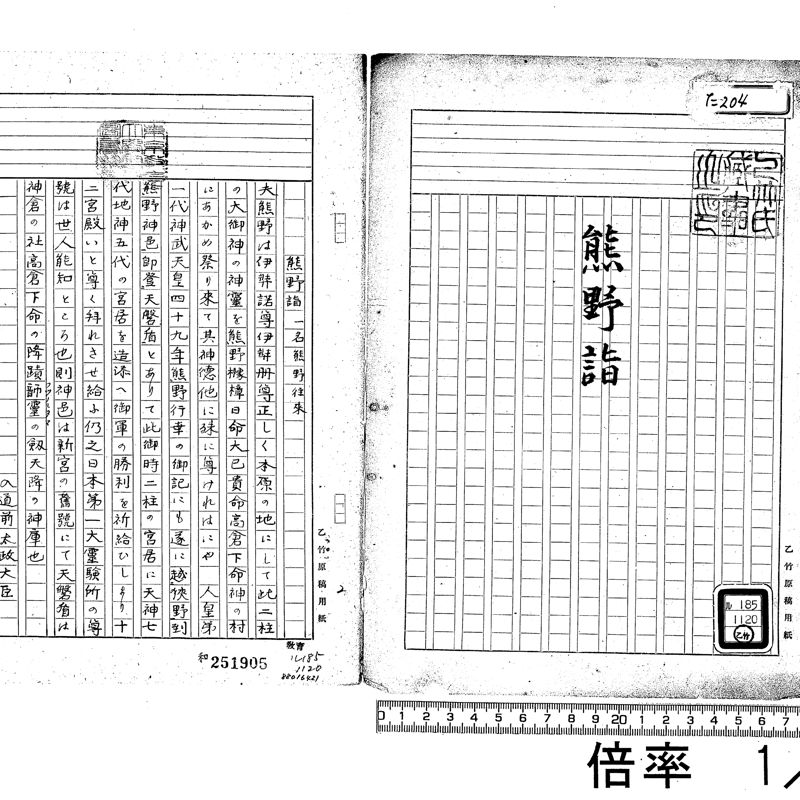 ﾀ=204
熊野詣
ル185
1120
乙竹
乙竹原稿用紙
熊野詣 一名熊野往来
夫熊野は伊弉諾尊伊弉冊尊正しく本原の地にして此二柱
の大御神の神靈を熊野櫲樟日命大己貴命高倉下命神の村
にあかめ祭り來て其神德他に殊に尊けれはにや 人皇第
一代神武天皇四十九年熊野行幸の御記にも遂に越狹野到
熊野神邑即登天磐盾とありて此御時二柱の宮居に天神七
代地神五代の宮居を造添へ御軍の勝利を祈給ひしより十
二宮殿いと尊く拜れさせ給ふ仍之日本第一大靈験所の尊
號は世人能知ところ也則神邑は新宮の舊號にて天磐盾は
神倉の社高倉下命の降蹟韴靈の劔天降の神庫也
入道前太政大臣
乙竹原稿用紙
2
和 251905
教育
ル185
1120
88016421
0 1 2 3 4 5 6 7 8 9 20 1 2 3 4 5 6 7
倍率 1/